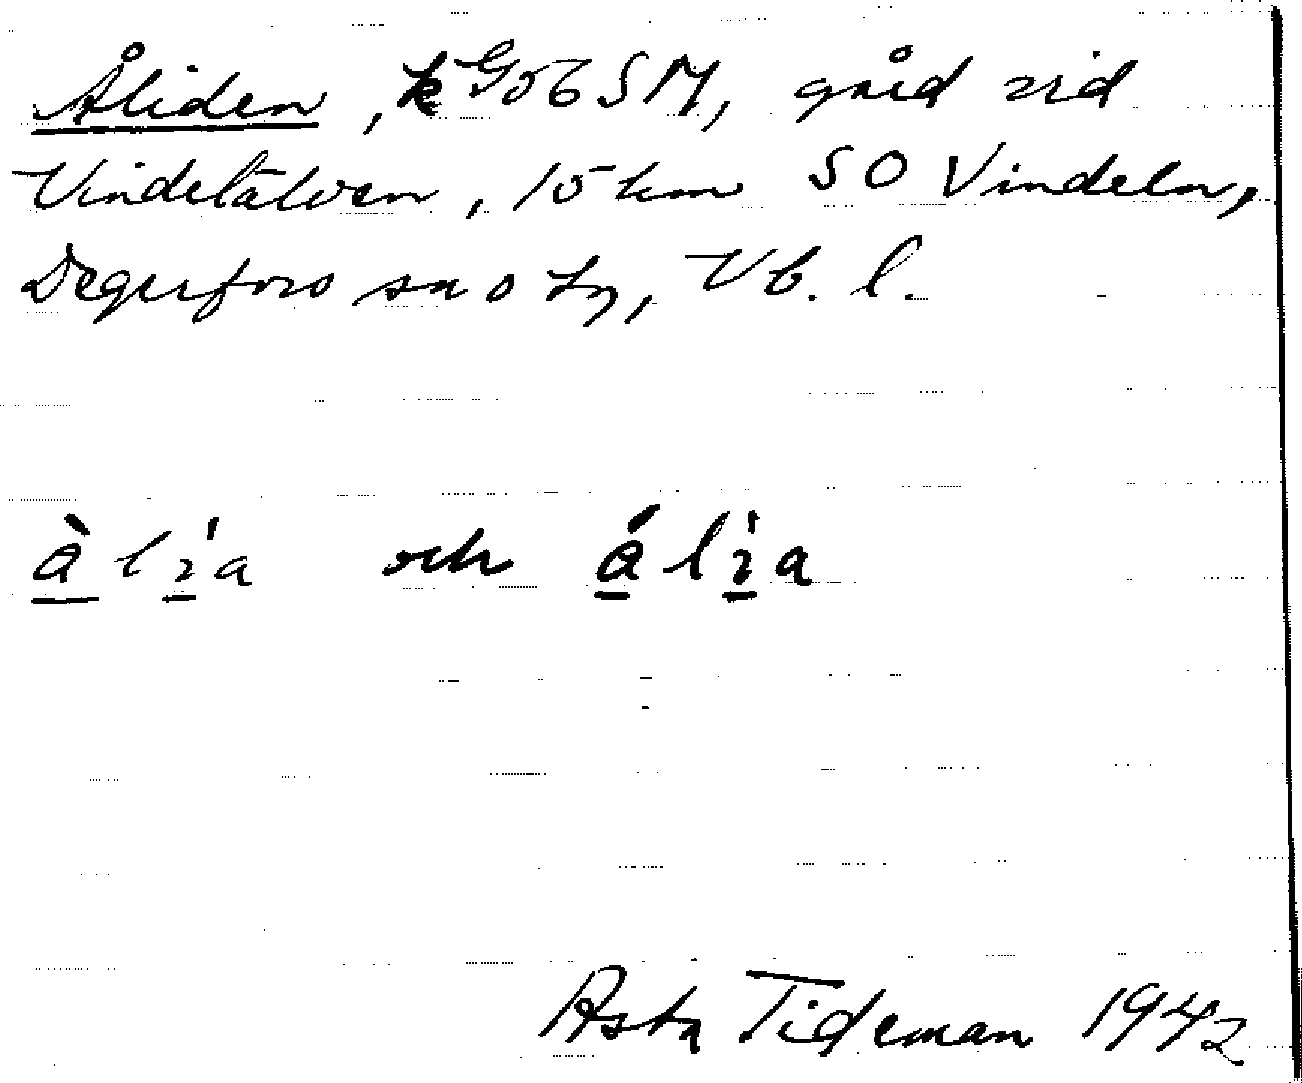 Åliden, k G06 SM, gård vid
Vindelälven, 15 km SO Vindeln,
Degerfors sn o tg, Vb. l.
à lı́a och á lı̀́a
Asta Tideman 1942